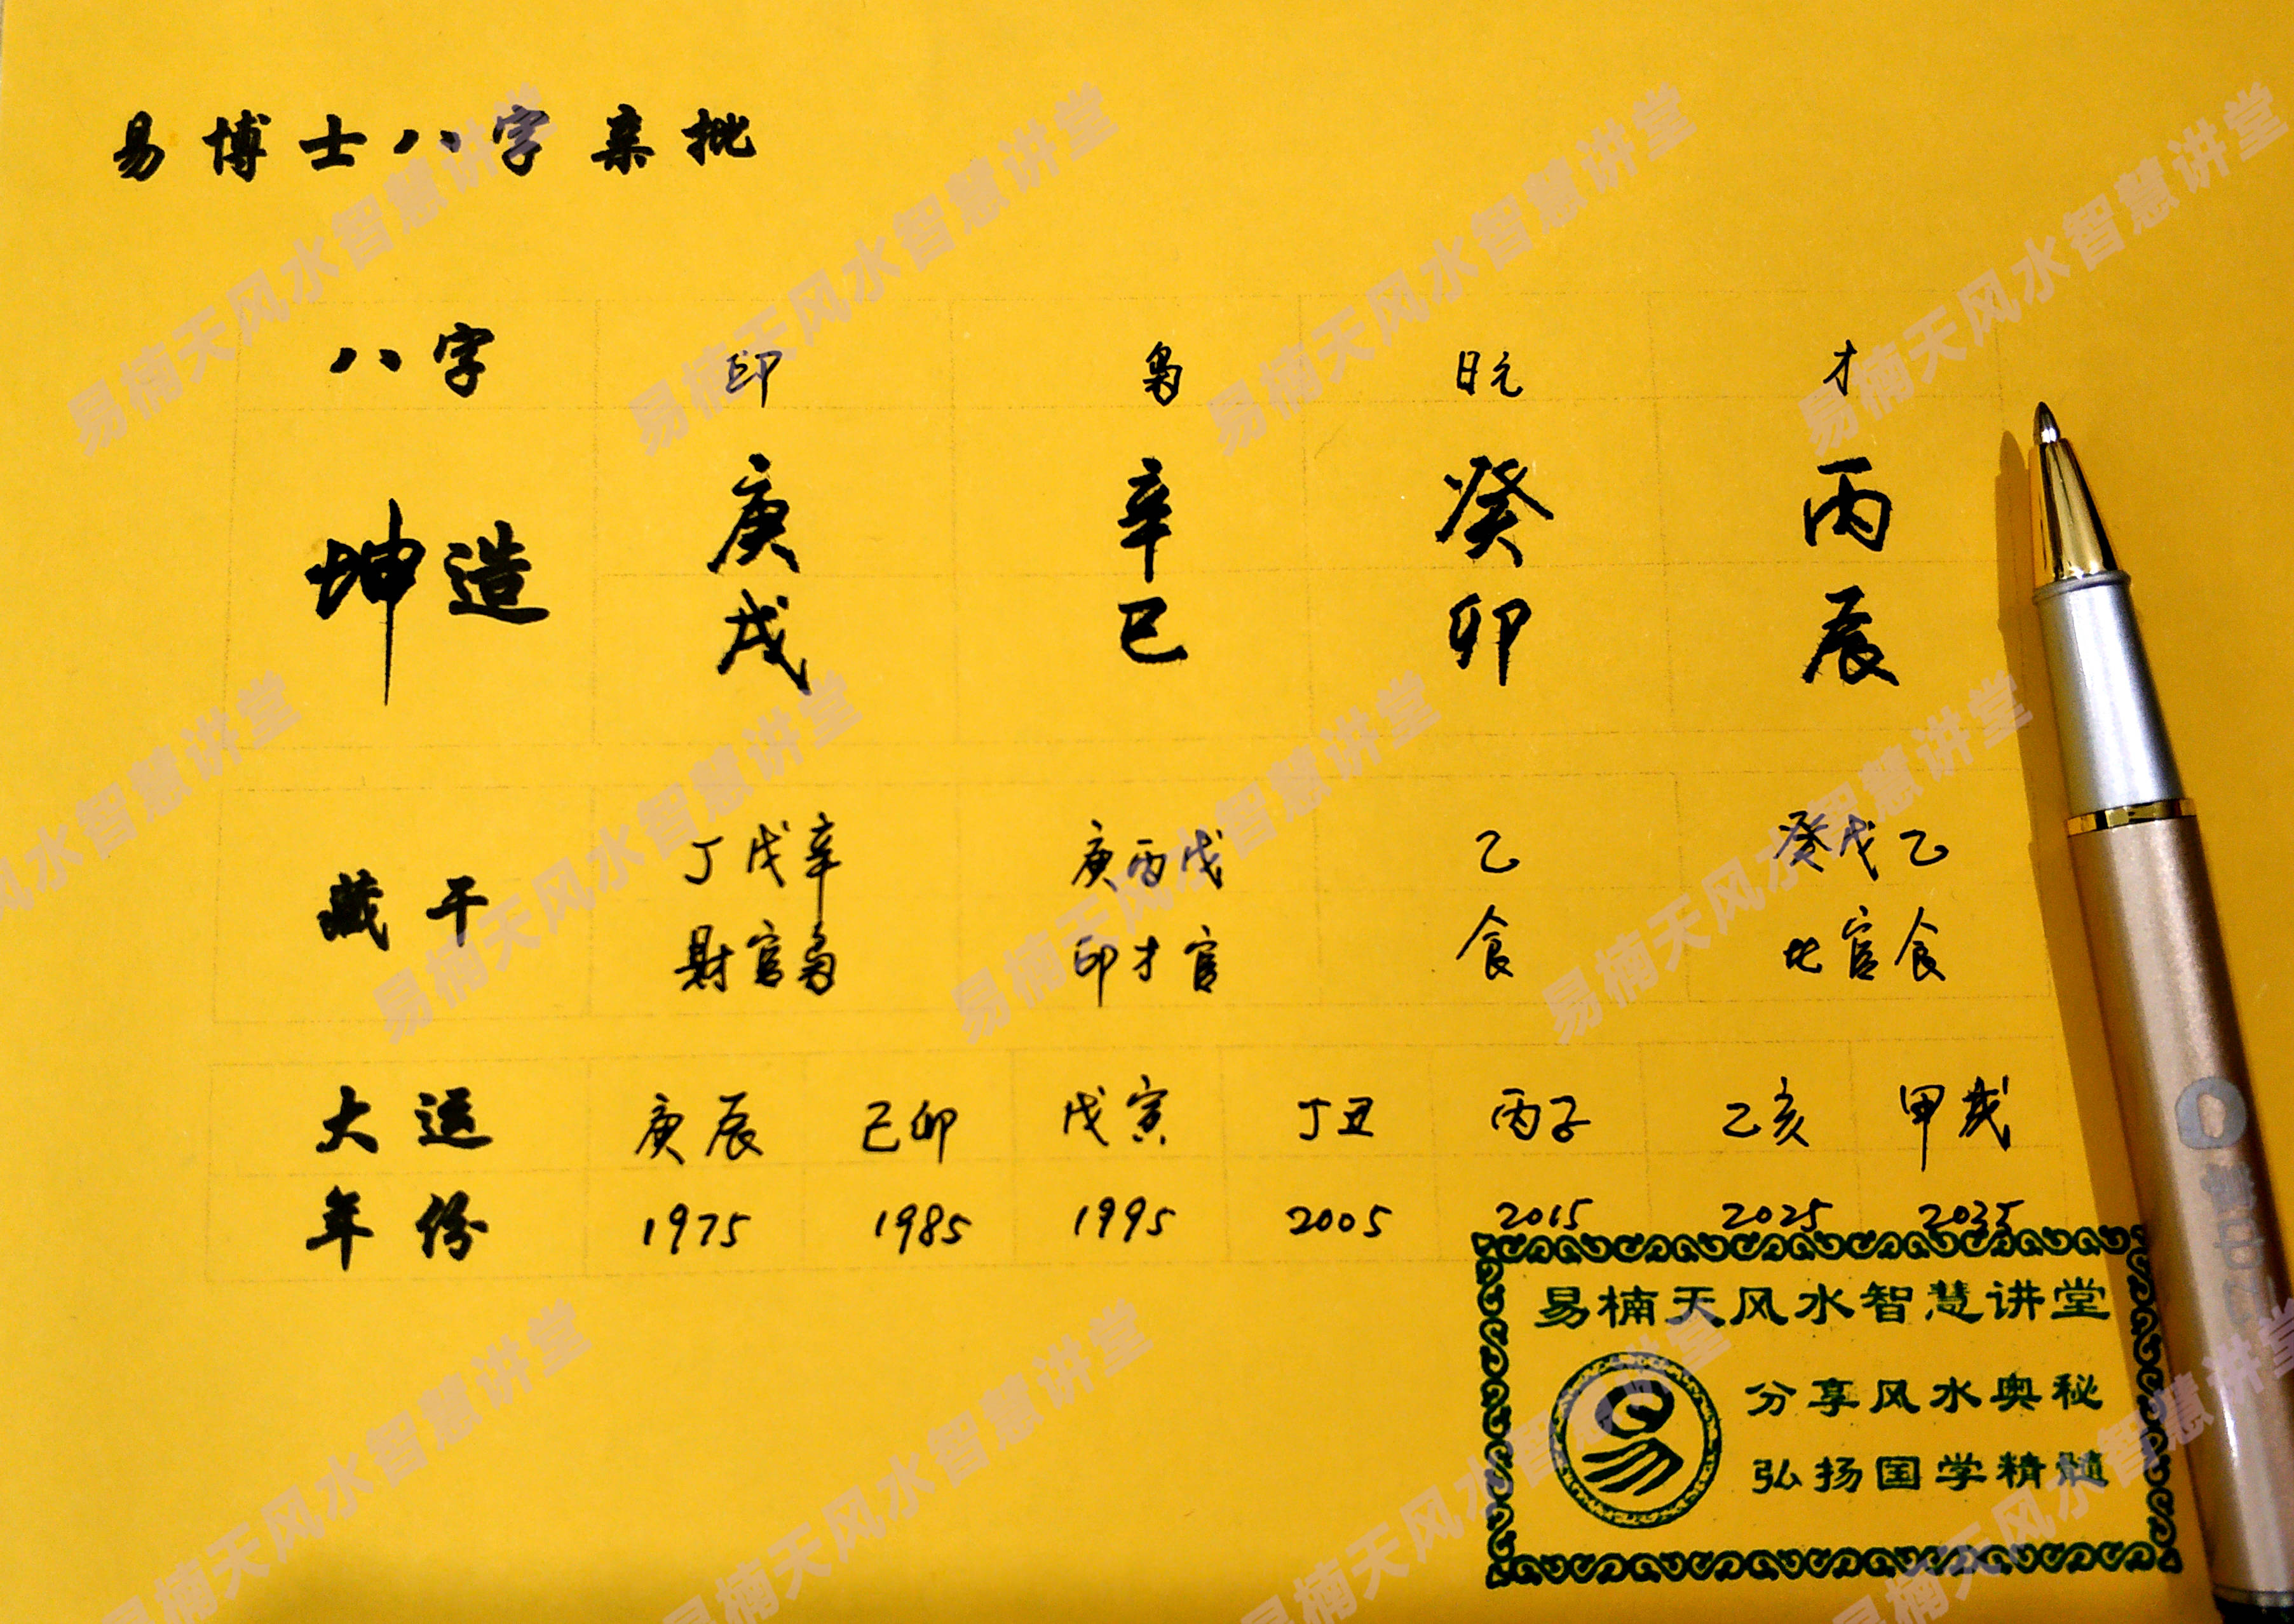 易博士八字亲批
八字 印 枭 日元 才
坤造 庚 辛 癸 丙
戌 巳 卯 辰
藏干 丁戊辛 庚丙戊 乙 癸戊乙
财官枭 印才官 食 比官食
大运 庚辰 己卯 戊寅 丁丑 丙子 乙亥 甲戌
年份 1975 1985 1995 2005 2015 2025 2035
易楠天风水智慧讲堂
分享风水奥秘
弘扬国学精髓
易楠天风水智慧讲堂